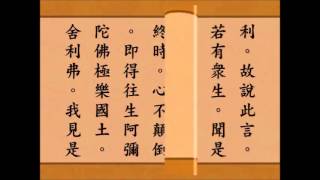 利。故說此言。
若有衆生。聞是
終時。心不顛倒
。即得往生阿彌
陀佛極樂國土。
舍利弗。我見是